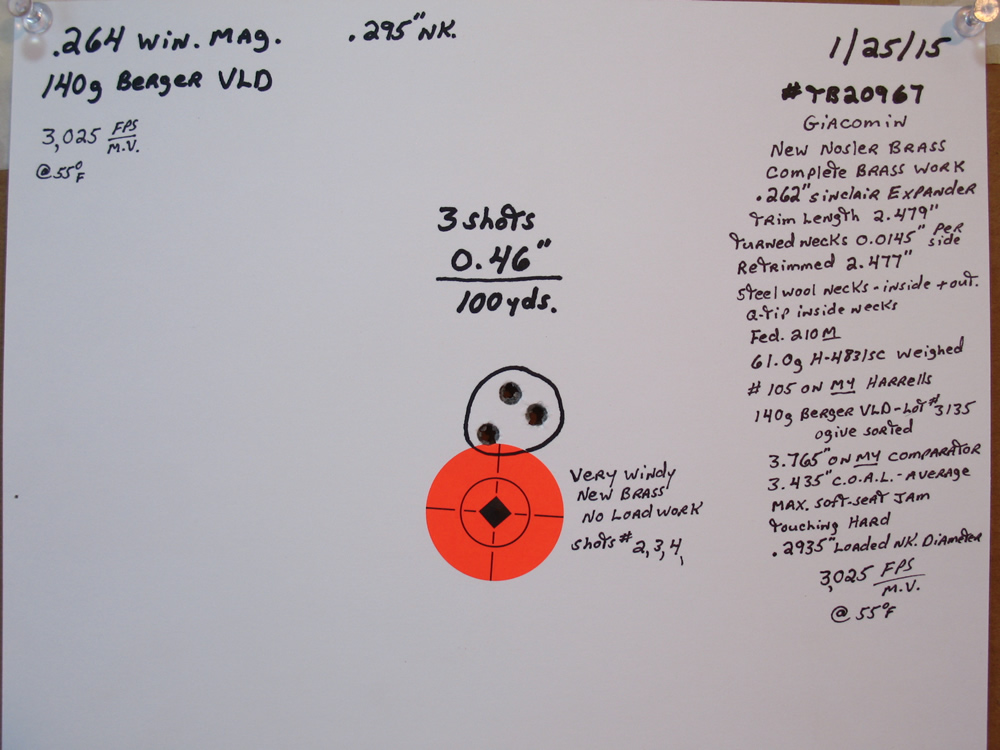 .264 Win. Mag.
.295" NK.
140g Berger VLD
3,025 FPS/M.V.
@55°F
3 shots
0.46"
100 yds.
Very Windy
New Brass
No Load Work
shots # 2,3,4,
1/25/15
#TB20967
Giacomin
New Nosler Brass
Complete Brass Work
.262" Sinclair Expander
Trim Length 2.479"
Turned Necks 0.0145" Per side
Retrimmed 2.477"
Steel wool Necks - inside + out.
Q-tip inside necks
Fed. 210M
61.0g H-4831SC Weighed
# 105 on MY Harrells
140g Berger VLD - Lot # 3135
ogive sorted
3.765" on MY Comparator
3.435" C.O.A.L. - Average
Max. soft-seat Jam
Touching Hard
.2935" Loaded NK. Diameter
3,025 FPS/M.V.
@ 55°F